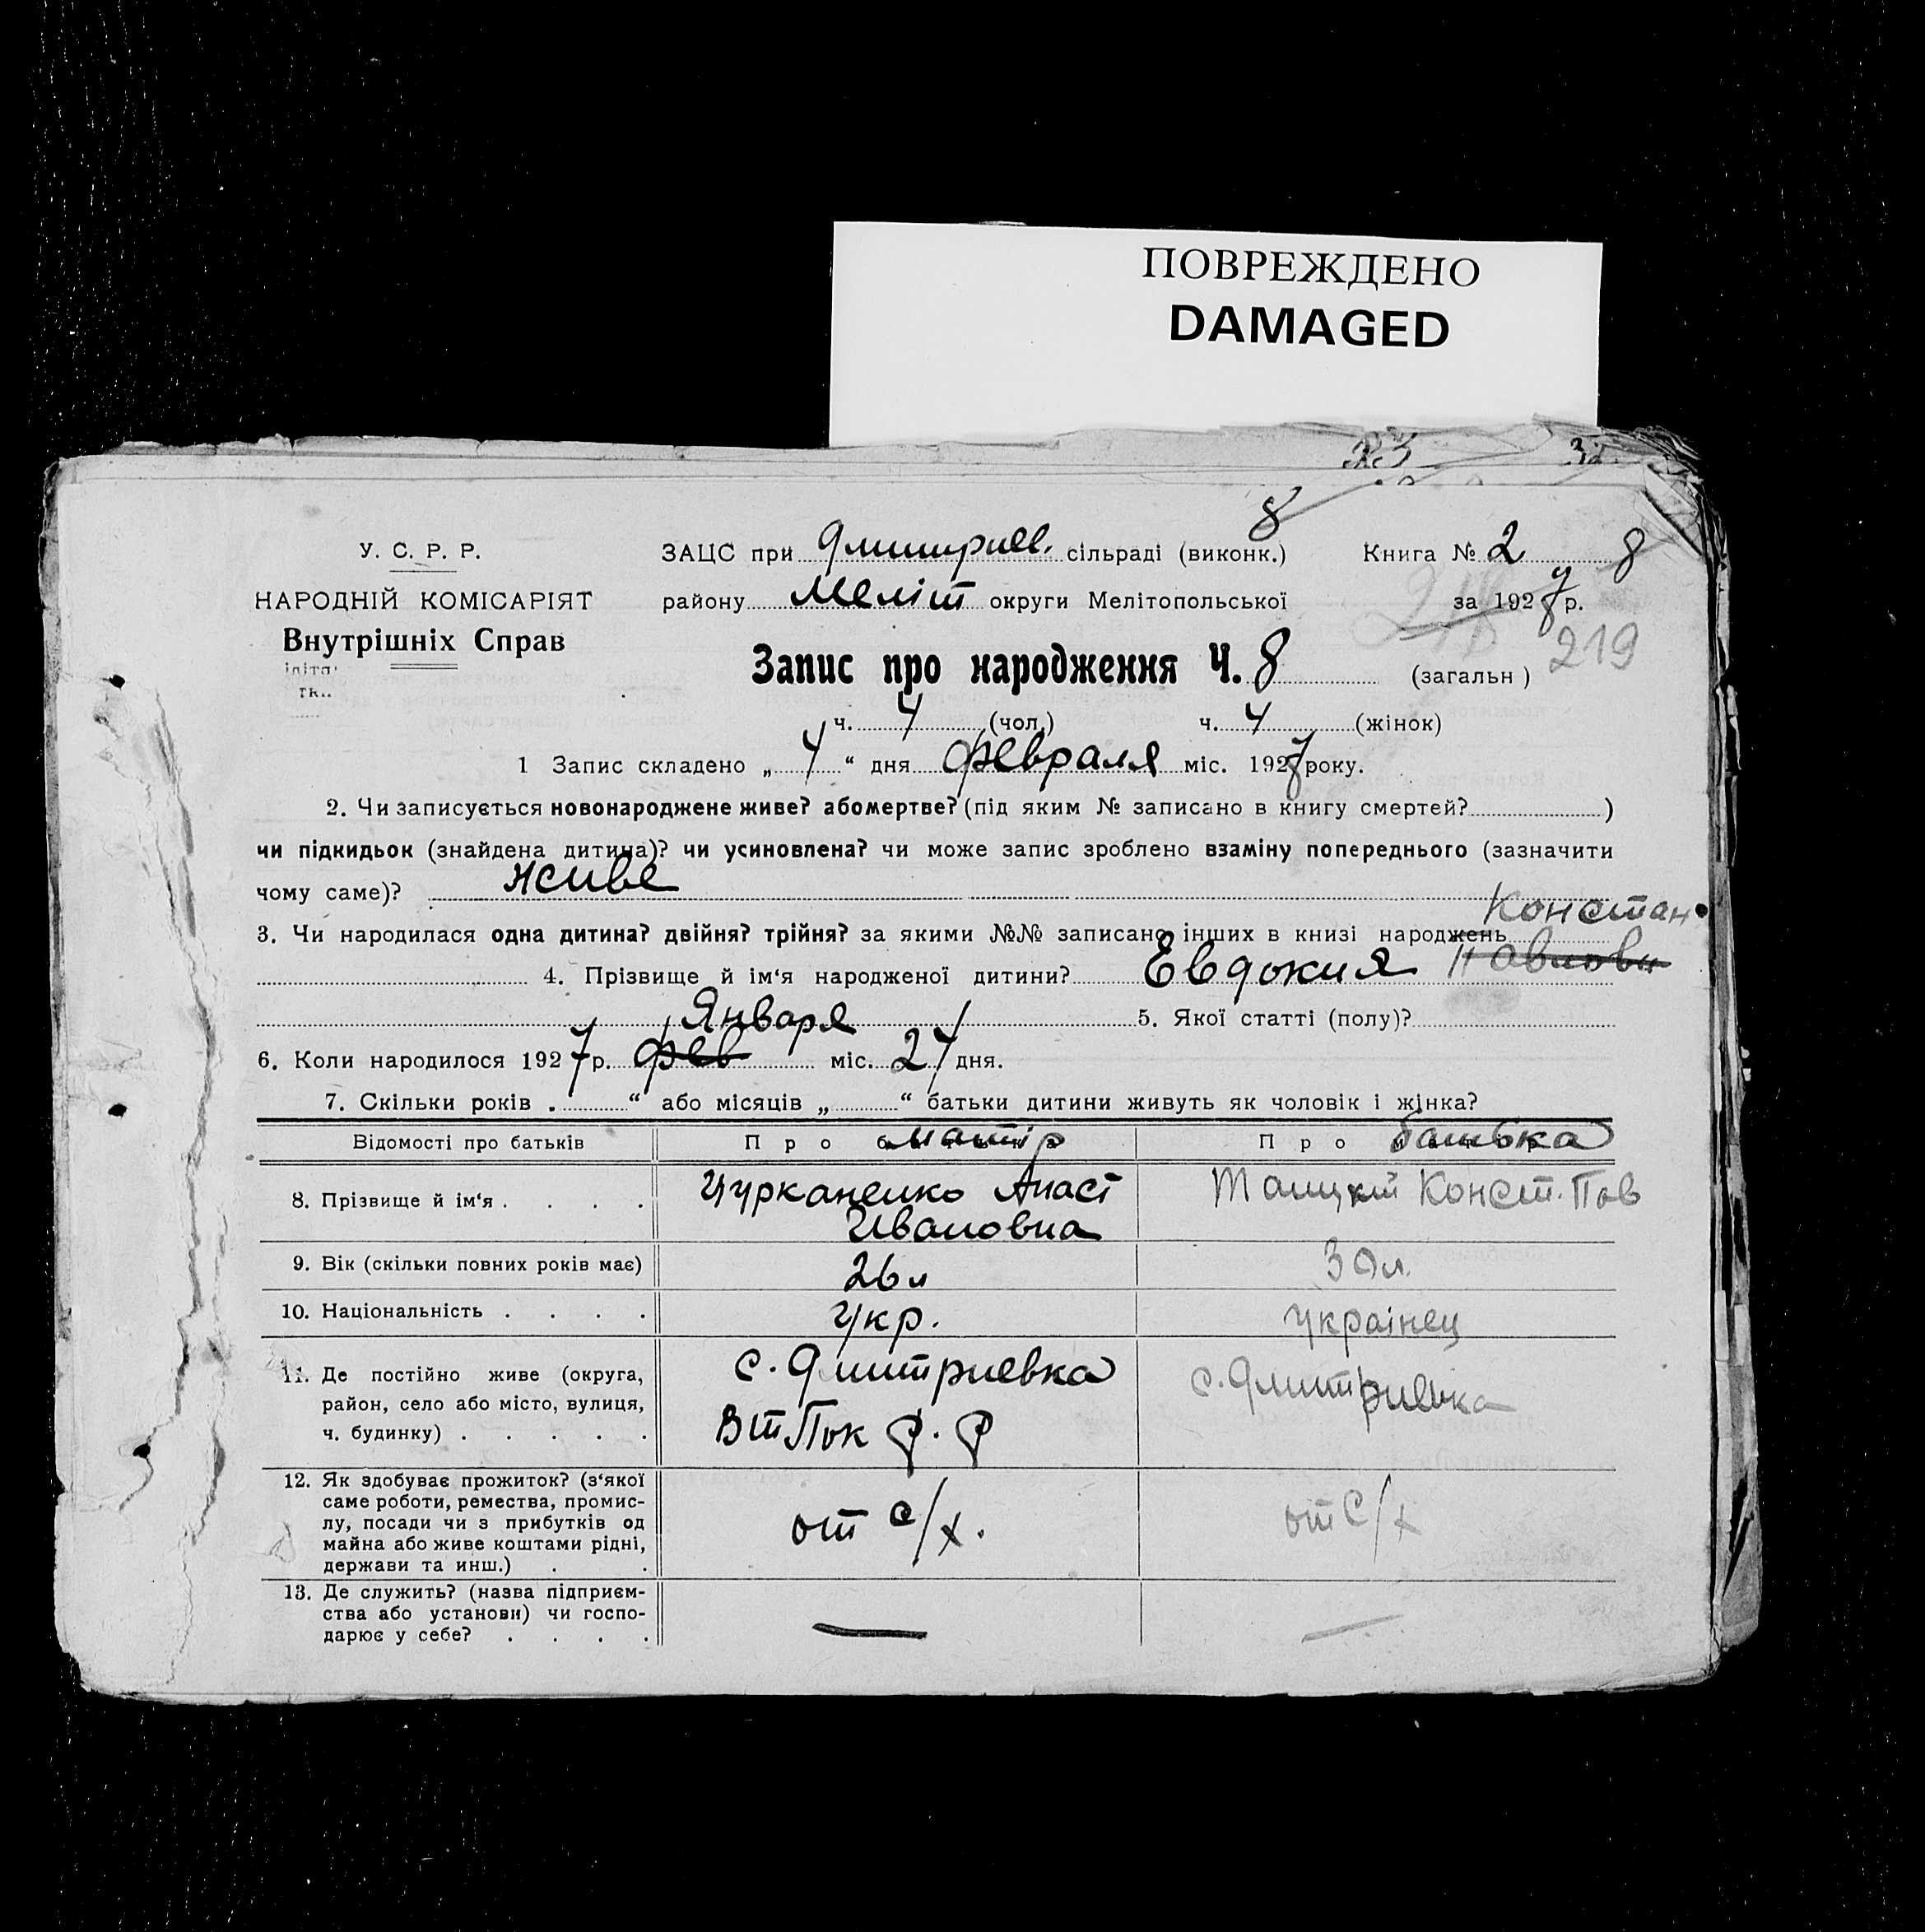 ПОВРЕЖДЕНО
DAMAGED
8
У. С. Р. Р.
ЗАЦС при Дмитриев. сільраді (виконк.)
Книга № 2 8
НАРОДНІЙ КОМІСАРІЯТ
району Меліт округи Мелітопольської
за 1927 р.
Внутрішніх Справ
219
Запис про народження Ч. 8 (загальн )
ч. 4 (чол.) ч. 4 (жінок)
1 Запис складено „ 4 “ дня февраля міс. 1927 року.
2. Чи записується новонароджене живе? абомертве? (під яким № записано в книгу смертей? )
чи підкидьок (знайдена дитина)? чи усиновлена? чи може запис зроблено взаміну попереднього (зазначити
чому саме)? живе
Констан
3. Чи народилася одна дитина? двійня? трійня? за якими №№ записано інших в книзі народжень
4. Прізвище й ім‘я народженої дитини? Евдокия Павловн
Января
5. Якої статті (полу)?
6. Коли народилося 1927 р. фев міс. 24 дня.
7. Скільки років . “ або місяців „ “ батьки дитини живуть як чоловік і жінка?
Відомості про батьків
Про матір
Про батька
8. Прізвище й ім‘я . . . .
Цурканенко Анаст
Ивановна
Конст. Пав
9. Вік (скільки повних років має)
26 л
30 л.
10. Національність . . . .
Укр.
українец
11. Де постійно живе (округа,
район, село або місто, вулиця,
ч. будинку) . . . . .
с. Дмитриевка
с. Дмитриевка
12. Як здобуває прожиток? (з‘якої
саме роботи, ремества, промис-
лу, посади чи з прибутків од
майна або живе коштами рідні,
держави та инш.) . .
от с/х.
от с/х
13. Де служить? (назва підприєм-
ства або установи) чи госпо-
дарює у себе? . . . .